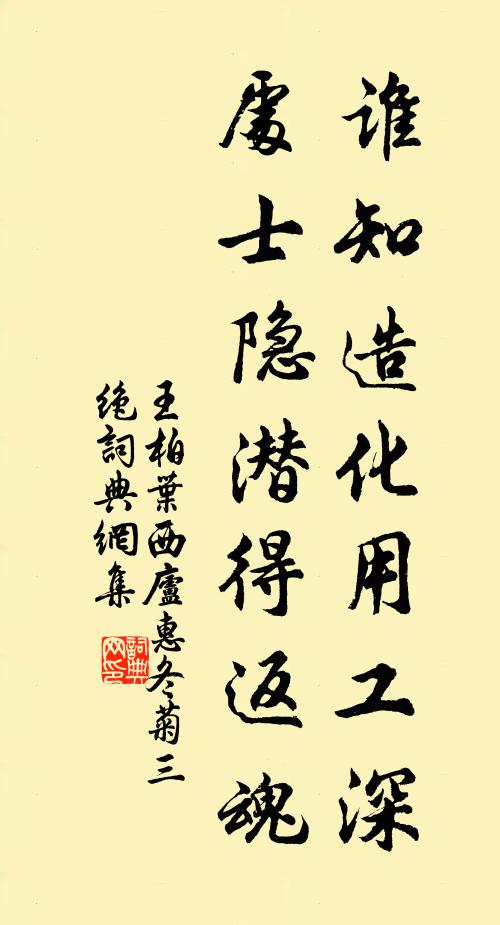 谁知造化用工深
處士隐潜得返魂
王柏葉西廬惠冬菊三
絶詞典網集
詞典網印